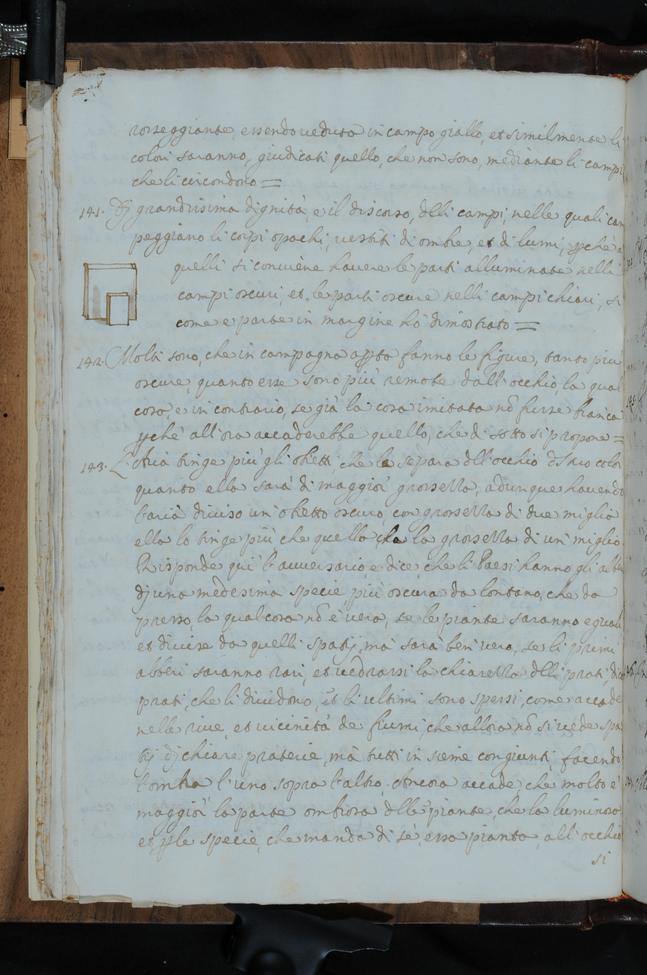 rosseggiante, essendo veduto in campo giallo, et similmente li
colori saranno, giudicati quello, che non sono, mediante li campi
che li circondono =
141. Di grandissima dignità e il discorso, dlli campi, nelle quali cam
peggiano li corpi opachi, vestiti di ombre, et di lumi, pche a
quelli si conviene havere le parti alluminate nelli
campi oscuri, et le parti oscure nelli campi chiari, si
come e parte in margine hò dimostrato =
142. Molti sono, che in campagna appta fanno le figure, tanto piu
oscure, quanto esse sono più remote dall'occhio, la qual
cosa e in contrario, se già la cosa imitata nō fusse bianca
pche all'ora accaderebbe quello, che di sotto si propone =
143. L'Aria tinge più gli obetti, che la separa dll'occhio dl suo color
quanto ella sarà di maggior grossezza, adunque havendo
l'aria diviso un obetto oscuro, con grossezza di due miglia
ella lo tinge più che quello che la grossezza di un miglio.
Risponde qui l'avversario, e dice, che li Paesi hanno gli albe
di una medesima specie più oscura da lontano, che da
presso, la qual cosa nō è vera, se le piante saranno eguali
et divise da quelli spatij, mà sarà ben vero, se li primi
alberi saranno rari, et vedrassi la chiarezza dlli prati di
prati, che li dividono, et li ultimi sono spessi, come accade
nelle rive, et vicinità de fiumi, che allora nō si vede spa
tij di chiare praterie, mà tutti in sieme congiunti, facendo
l'ombra l'uno sopra l'altro. Ancora accade, che molto e
maggior la parte ombrosa dlle piante, che la luminosa
et ple specie, che manda di se, essa pianta, all'occhio
si